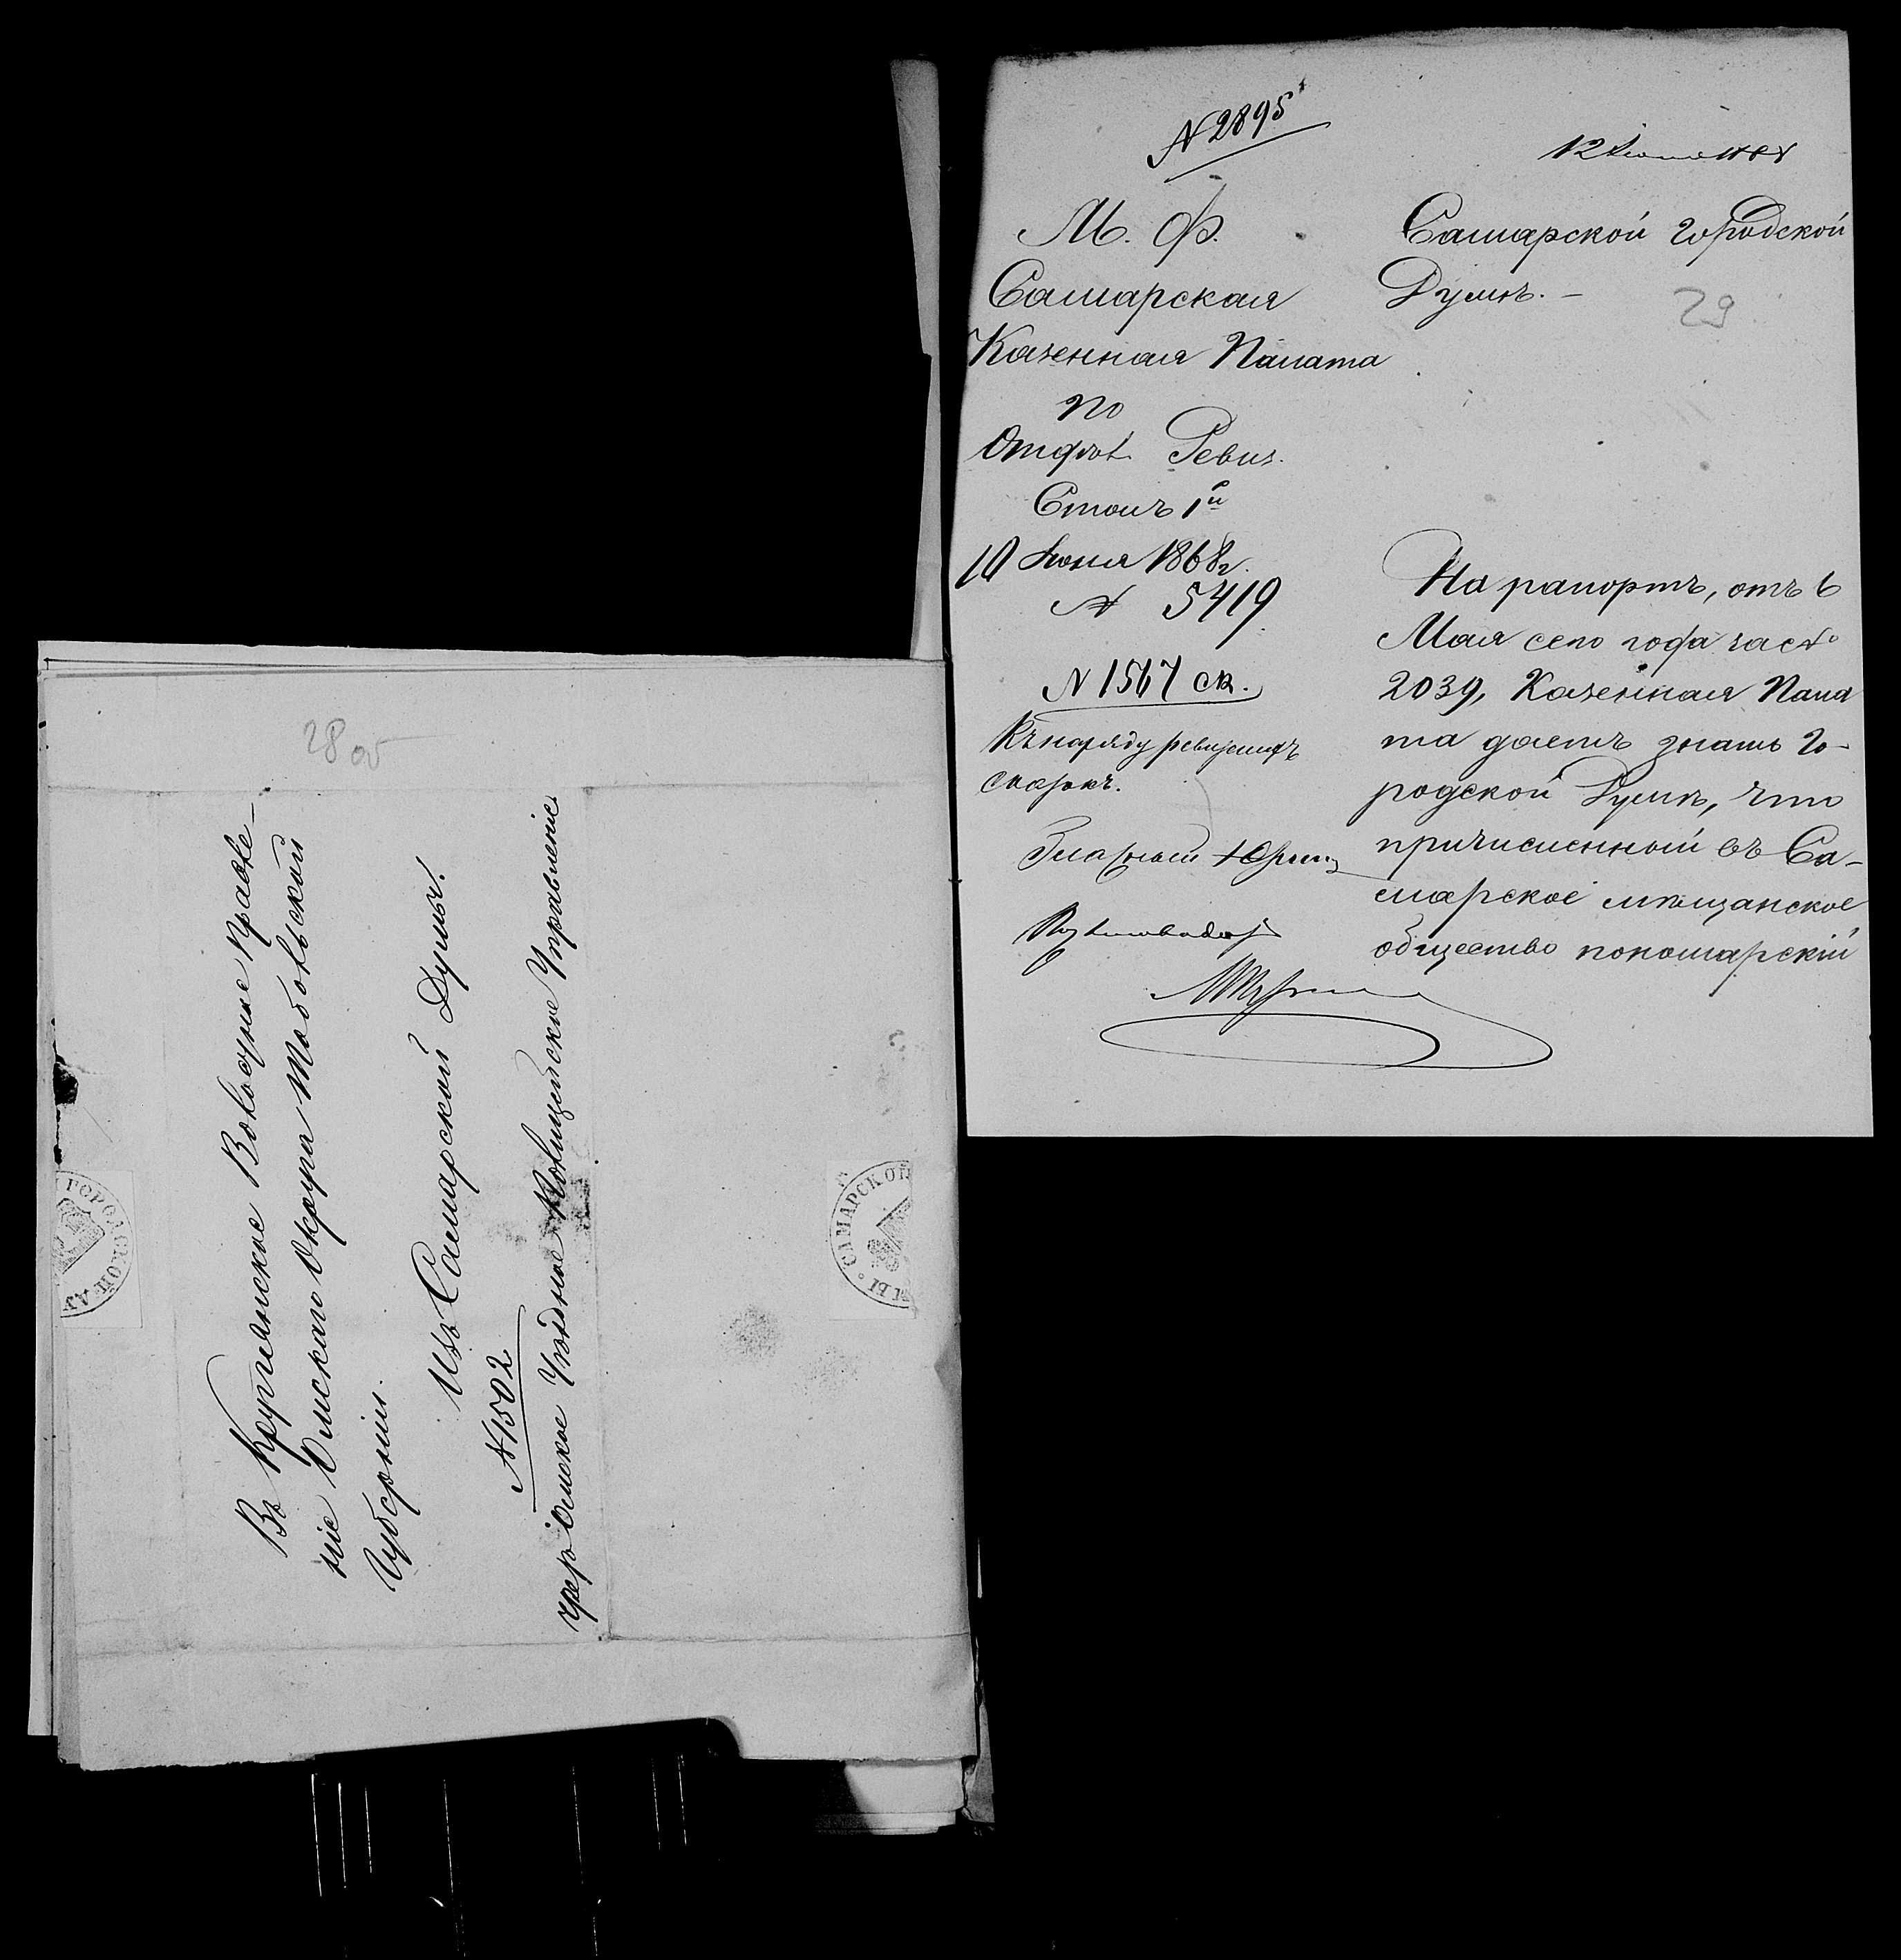 28 об
Въ Кругланское Волостное Правле-
ніе Омскаго Округа Тобольской
Губерніи.
Изъ Самарской Думы.
№ 1502
чрез Омское Уѣздное Полицейское Управленіе
ГОРОДСКОЙ ДУ
САМАРСКОЙ
МЫ
№ 2895
12 Іюня 1868
М. Ф.
Самарская
Казенная Палата
по
Отдѣл. Ревиз.
Столъ 1й
10 Іюня 1868 г.
№ 5419
№ 1567 ск.
Къ наряду ревизскихъ
сказокъ.
Самарской Городской
Думѣ. –
29
На рапортъ, отъ 6
Мая сего года за №
2039, Казенная Пала
та даетъ знать Го-
родской Думѣ, что
причисленный въ Са-
марское мѣщанское
общество